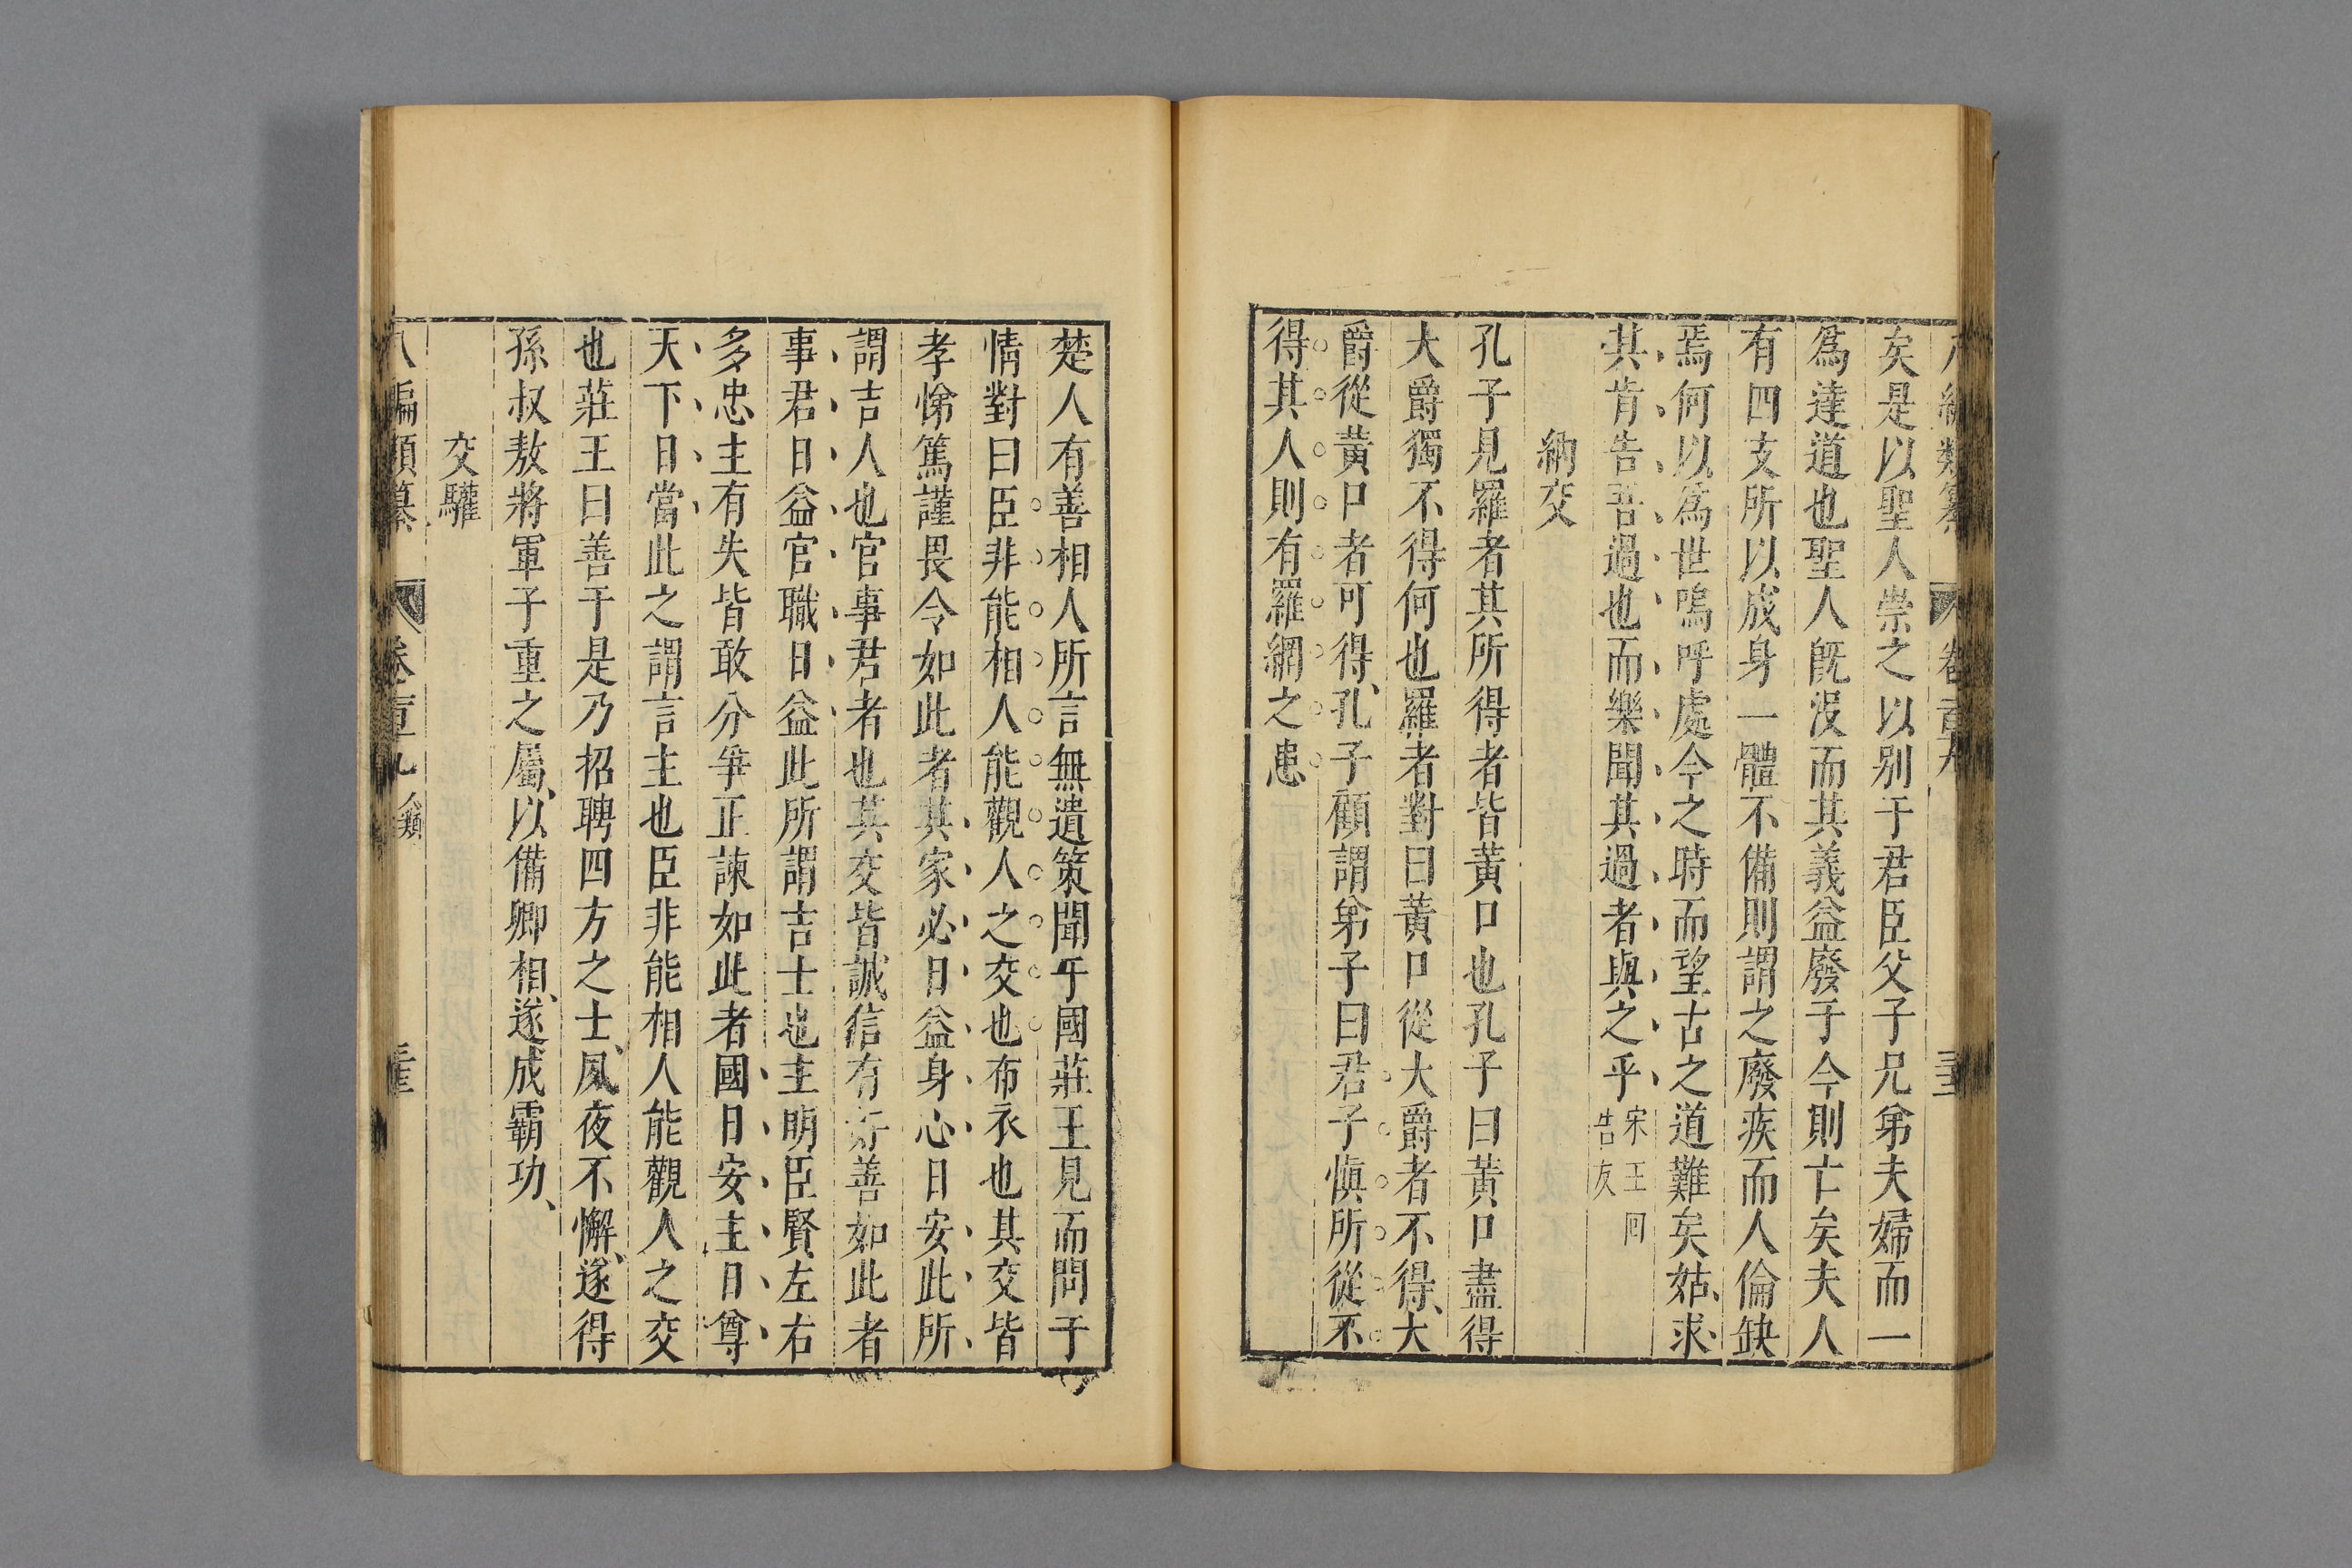 八編類纂 卷百九
矣是以聖人崇之以别于君臣父子兄弟夫婦而一
爲達道也聖人旣沒而其義益廢于今則亡矣夫人
有四支所以成身一體不備則謂之廢疾而人倫缺
焉何以爲世嗚呼處今之時而望古之道難矣姑求
其肯告吾過也而樂聞其過者與之乎宋王回告友
納交
孔子見羅者其所得者皆黃口也孔子曰黃口盡得
大爵獨不得何也羅者對曰黃口從大爵者不得大
爵從黃口者可得孔子顧謂弟子曰君子愼所從不
得其人則有羅網之患
楚人有善相人所言無遺策聞于國莊王見而問于
情對曰臣非能相人能觀人之交也布衣也其交皆
孝悌篤謹畏令如此者其家必日益身心日安此所
謂吉人也官事君者也其交皆誠信有好善如此者
事君日益官職日益此所謂吉士也主明臣賢左右
多忠主有失皆敢分爭正諫如此者國日安主日尊
天下日當此之謂言主也臣非能相人能觀人之交
也莊王曰善于是乃招聘四方之士夙夜不懈遂得
孫叔敖將軍子重之屬以備卿相遂成霸功
交驩
八編類纂 卷百九 人類